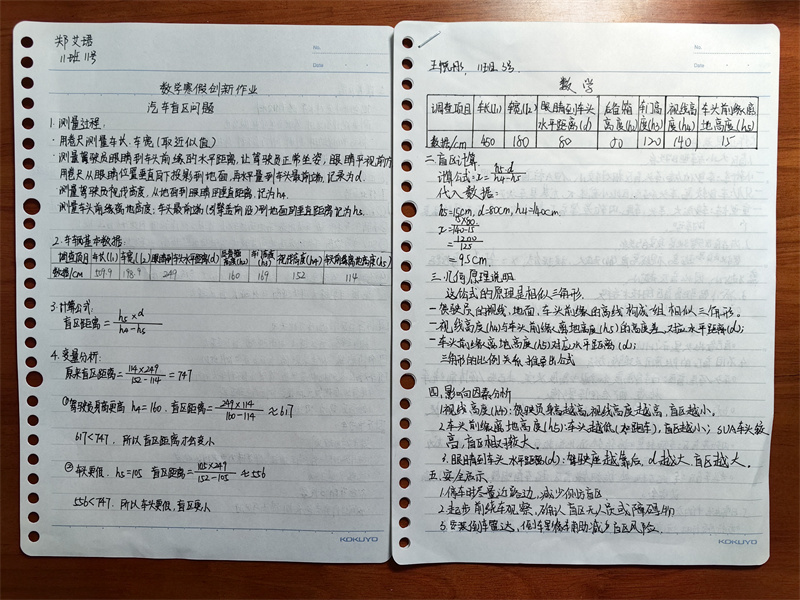 郑艾培
11班11号
No.
Date
数学寒假创新作业
汽车盲区问题
1. 测量过程
·用卷尺测量车长、车宽(取近似值)
·测量驾驶员眼睛到车头前缘的水平距离,让驾驶员正常坐姿,眼睛平视前方
用卷尺从眼睛位置垂直向下投影到地面,再水平量到车头最前端,记录为d.
·测量驾驶员视线高度,从地面到眼睛的垂直距离,记为h4.
·测量车头前缘离地高度,车头最前端(引擎盖前沿)到地面的垂直距离记为h5.
2. 车辆基本数据:
调查项目 车长(l1) 车宽(l2) 眼睛到车头水平距离(d) 后备箱高度(h2) 车门高度(h3) 视线高度(h4) 车头前缘离地高度(h5)
数据/cm 509.9 198.9 249 160 169 152 114
3. 计算公式:
盲区距离 = h5×d / h4-h5
4. 变量分析:
原来盲区距离 = 114×249 / 152-114 = 747
①驾驶员更高 h4=160, 盲区距离 = 249×114 / 160-114 ≈617
617<747, 所以盲区距离会变小
②车头更低, h5=105 盲区距离 = 105×249 / 152-105 ≈ 556
556<747, 所以车头更低,盲区更小
KOKUYO
11班 5号
No.
Date
数学
调查项目 车长(l1) 车宽(l2) 眼睛到车头水平距离(d) 后备箱高度(h2) 车门高度(h3) 视线高度(h4) 车头前缘离地高度(h5)
数据/cm 450 180 80 80 120 140 15
二.盲区计算.
计算公式: x = h5·d / h4-h5
代入数据:
h5=15cm, d=80cm, h4=140cm
x = 15×80 / 140-15
= 1200 / 125
= 9.5cm
三.几何原理说明
这公式的原理是相似三角形.
-驾驶员的视线,地面,车头前缘的离线构成组相似三角形。
-视线高度(h4)与车头前缘离地高度(h5)的高度差,对应水平距离(d);
-车头前缘离地高度(h5)对应水平距离(d);
三角形的比例关系推导出公式
四.影响因素分析
1.视线高度(h4):驾驶员身高越高,视线高度越高,盲区越小。
2.车头前缘离地高度(h5):车头越低(如跑车),盲区越小;SUA车头较
高,盲区相对较大。
3.眼睛到车头水平距离(d):驾驶座越靠后,d越大,盲区越大。
五.安全启示
1.停车时尽量边,减少侧方盲区
2.起步前绕车观察,确认盲区无人员或障碍物
3.安装倒车雷达,倒车影像辅助减少盲区风险.
KOKUYO